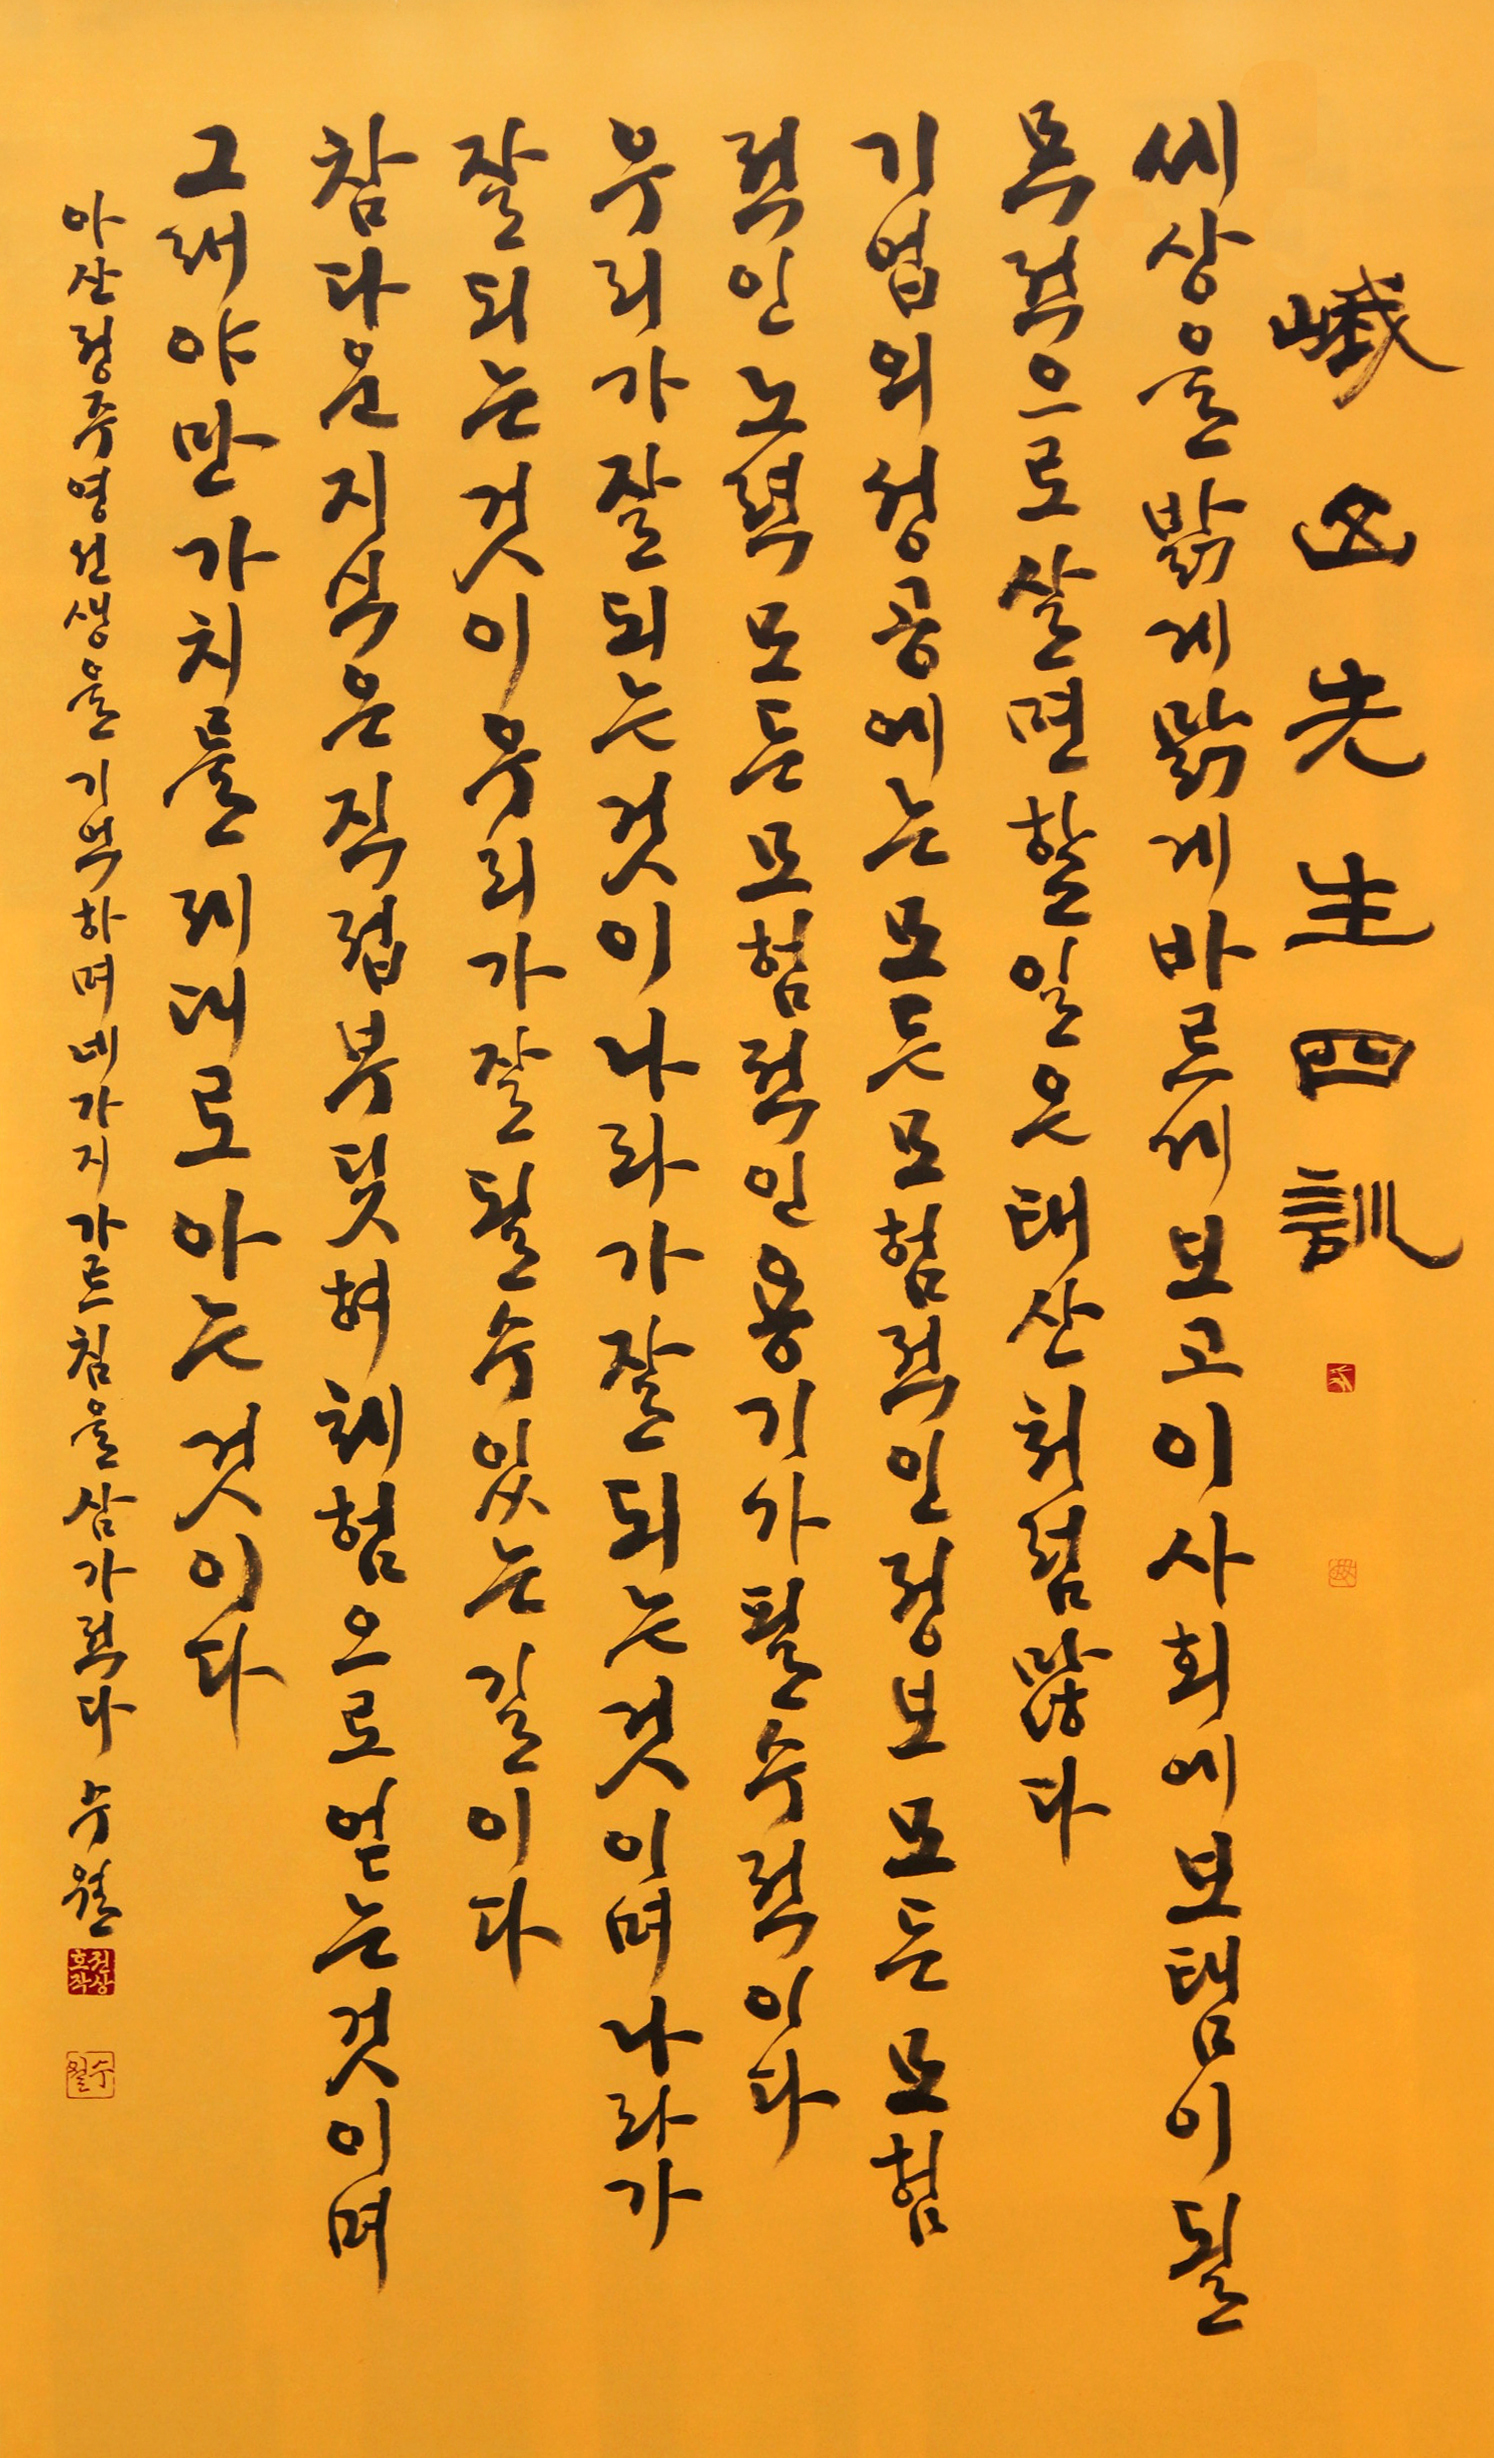 峨山先生四訓
세상을밝게맑게바르게보고이사회에보탬이될
목적으로살면할일은태산처럼많다
기업의성공에는모든모험적인정보모든모험
적인노력모든모험적인용기가필수적이다
우리가잘되는것이나라가잘되는것이며나라가
잘되는것이우리가잘될수있는길이다
참다운지식은직접부딪혀체험으로얻는것이며
그래야만가치를제대로아는것이다
아산정주영선생을기억하며네가지가르침을삼가적다 수월
권상호작
수월